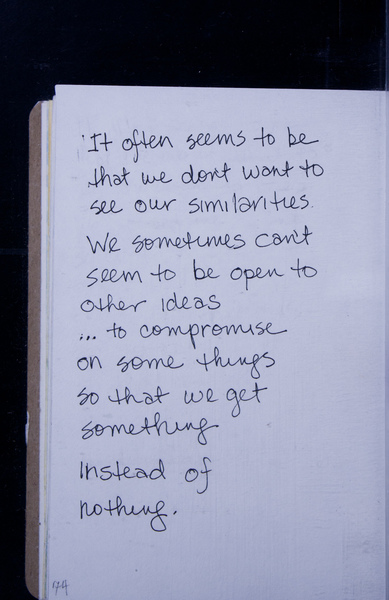 It often seems to be
that we don't want to
see our similarities.
We sometimes can't
seem to be open to
other ideas
... to compromise
on some things
so that we get
something
instead of
nothing.